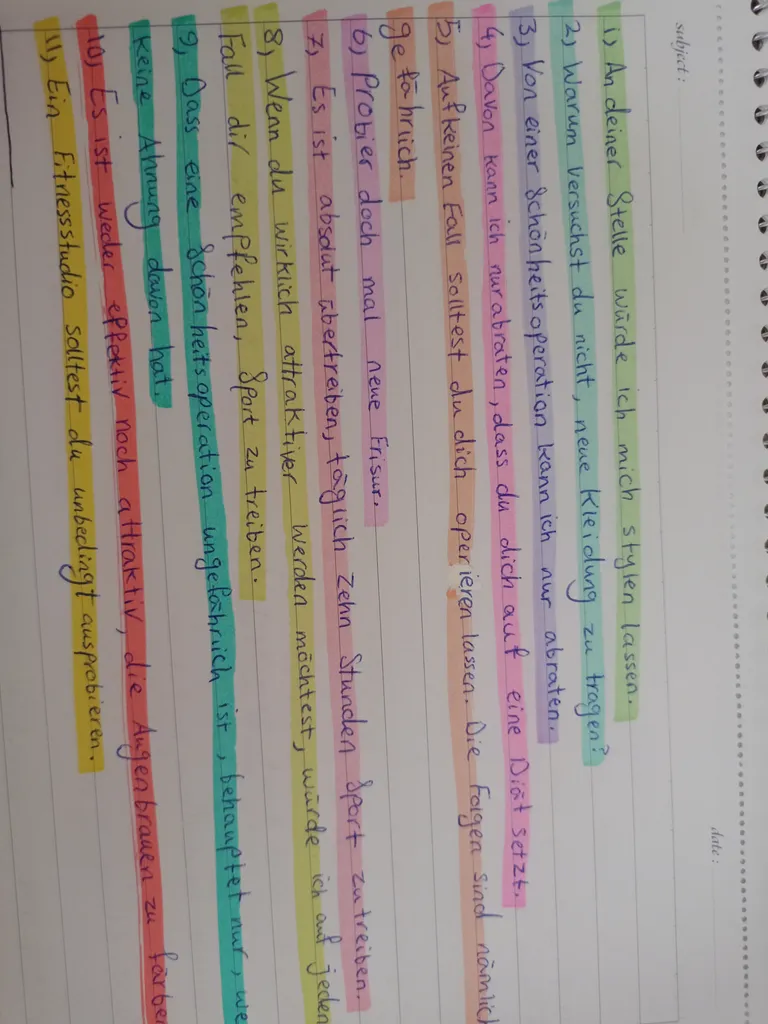 subject:
date:
1) An deiner Stelle würde ich mich stylen lassen.
2) Warum versuchst du nicht, neue Kleidung zu tragen?
3) Von einer Schönheitsoperation kann ich nur abraten.
4) Davon kann ich nur abraten, dass du dich auf eine Diät setzt.
5) Auf keinen Fall solltest du dich operieren lassen. Die Folgen sind nämlich
gefährlich.
6) Probier doch mal neue Frisur.
7) Es ist absolut übertreiben, täglich zehn Stunden Sport zu treiben.
8) Wenn du wirklich attraktiver werden möchtest, würde ich auf jeden
Fall dir empfehlen, Sport zu treiben.
9) Dass eine Schönheitsoperation ungefährlich ist, behauptet nur, we
keine Ahnung davon hat.
10) Es ist weder effektiv noch attraktiv, die Augenbrauen zu färben
11) Ein Fitnessstudio solltest du unbedingt ausprobieren.